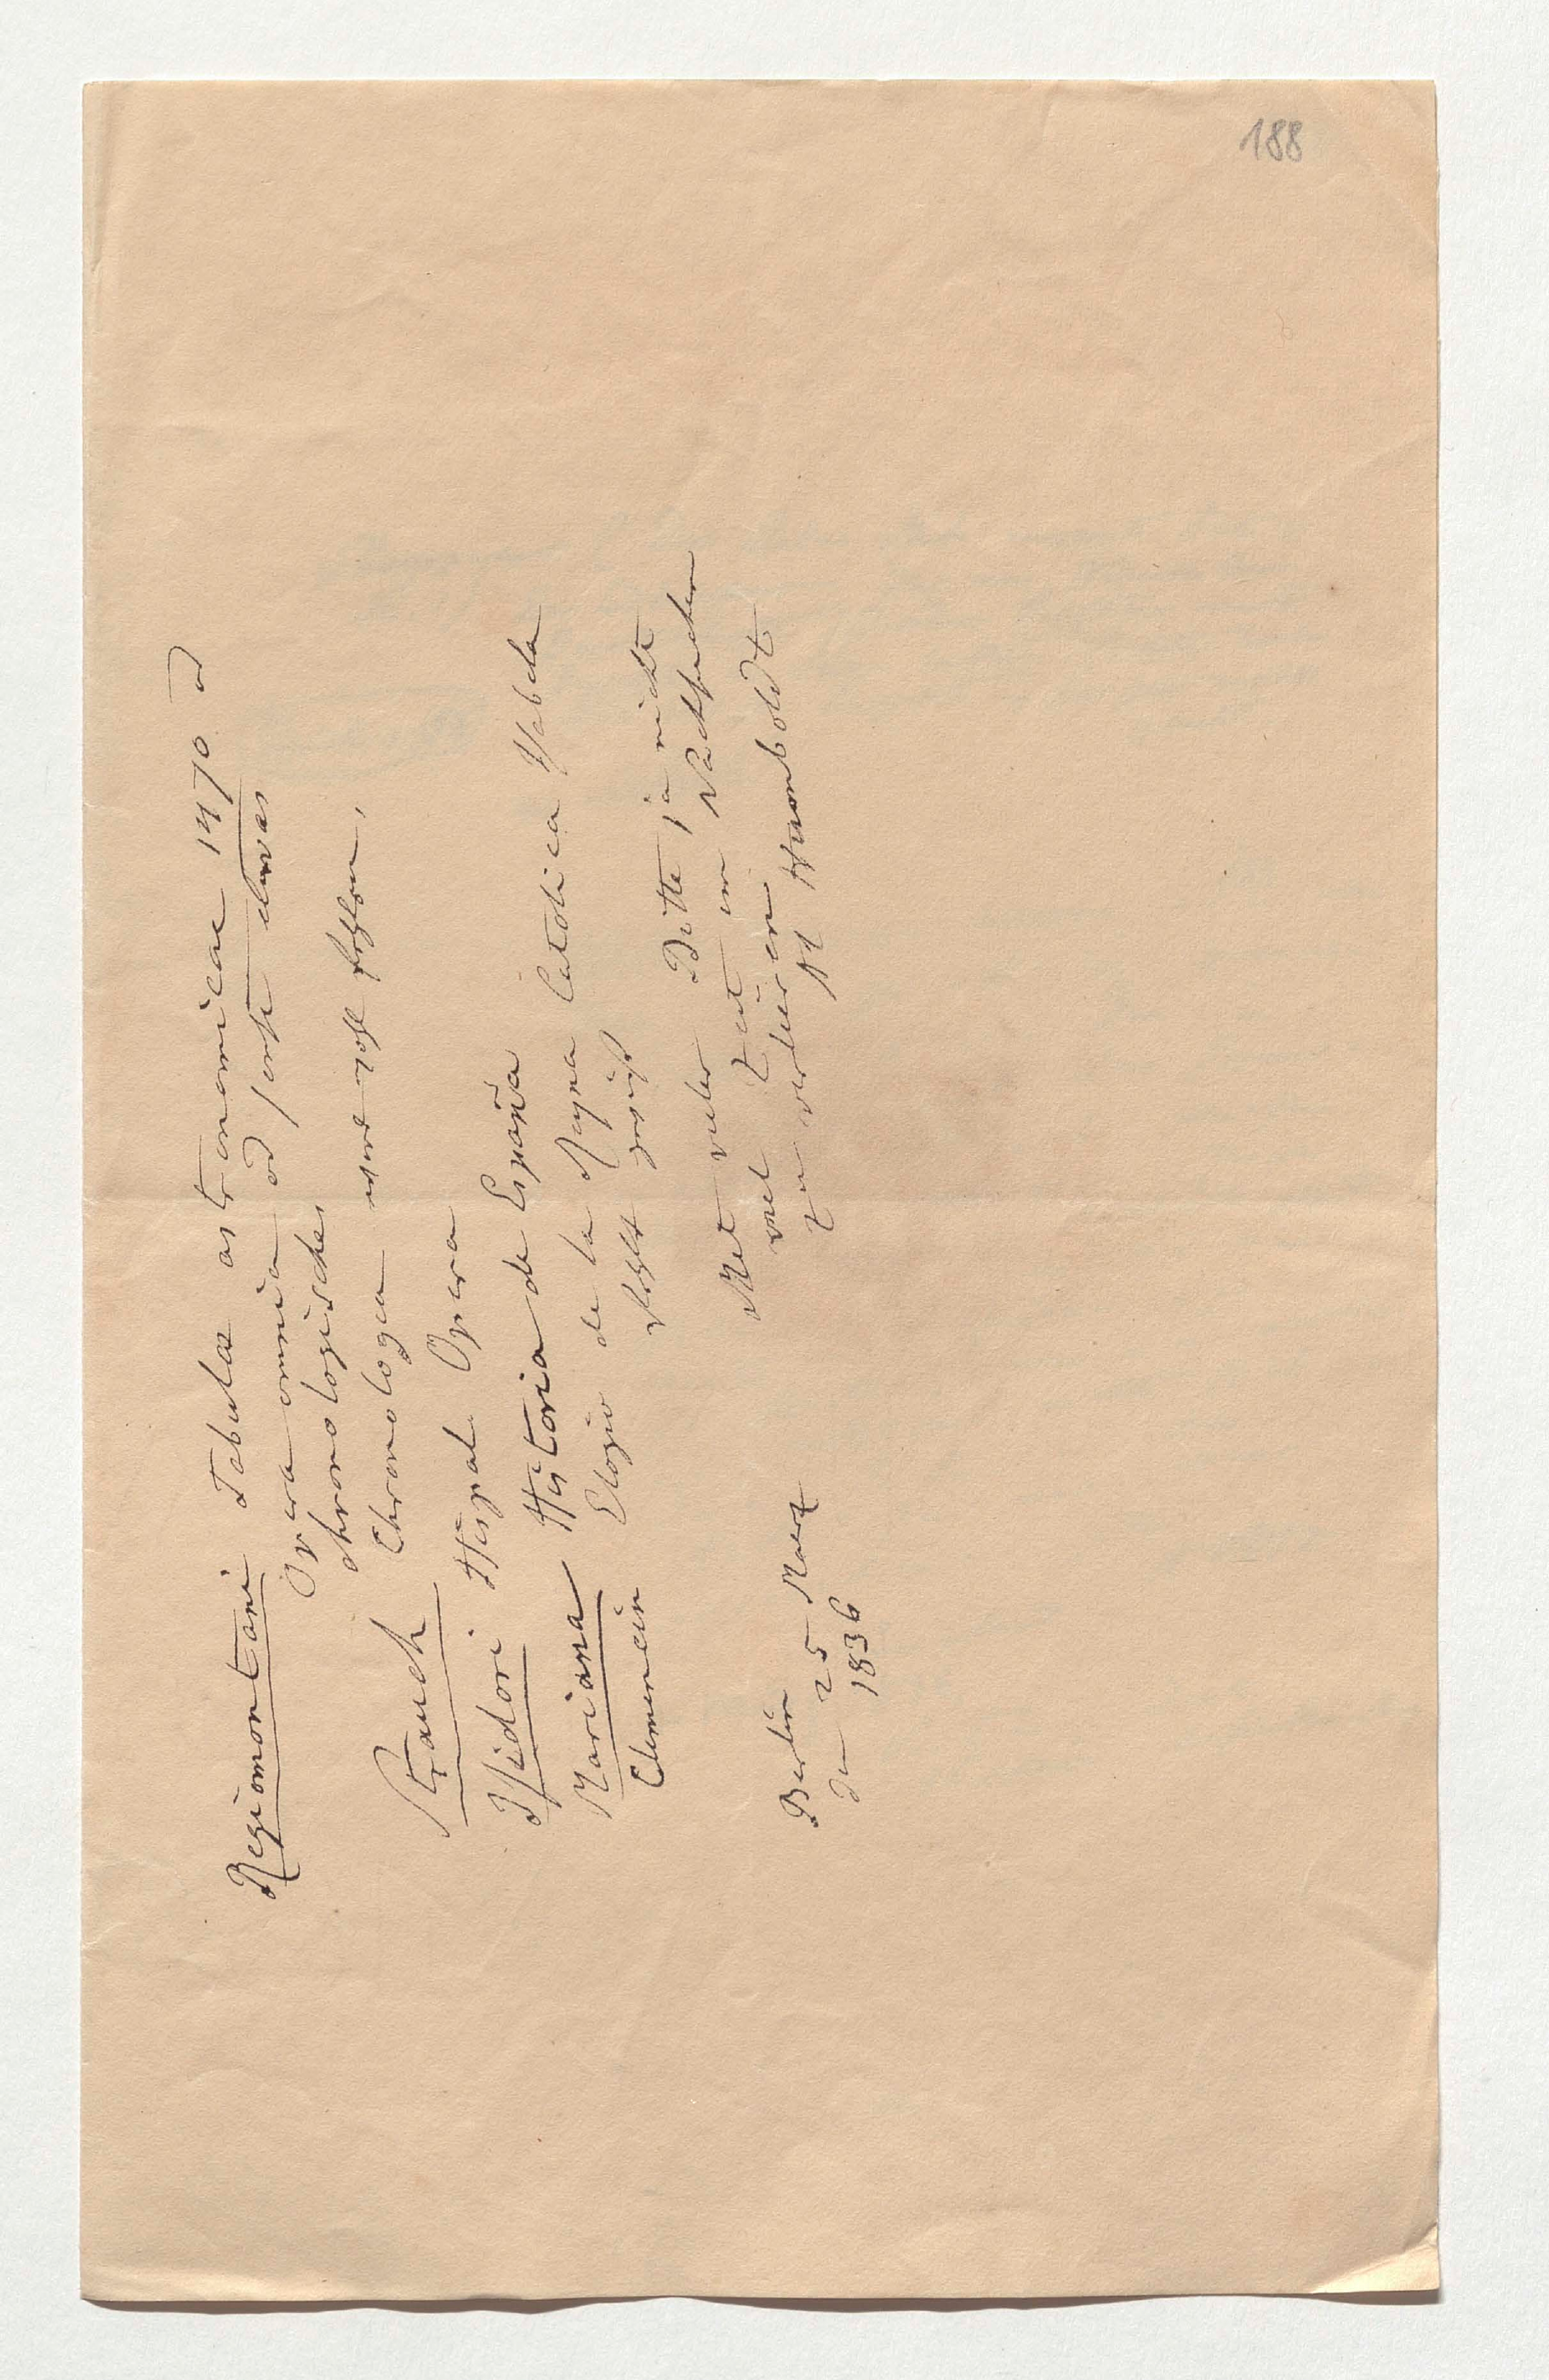 188
Regiomontani Tabulae astronomicae 1470 od
Opera omnia od sonst etwas
chronologisches
Chronologia wird wohl fehlen.
Strauch
Isidori Hispal. Opera
Mariana Historia de España
Clemencin Elogio de la Reyna Catolica Isabela
fehlt gewiß
Mit vieler Bitte ja nicht
viel Zeit im Nachsuchen
zu verlieren
Al Humboldt
Berlin
den 25 Maerz
1836